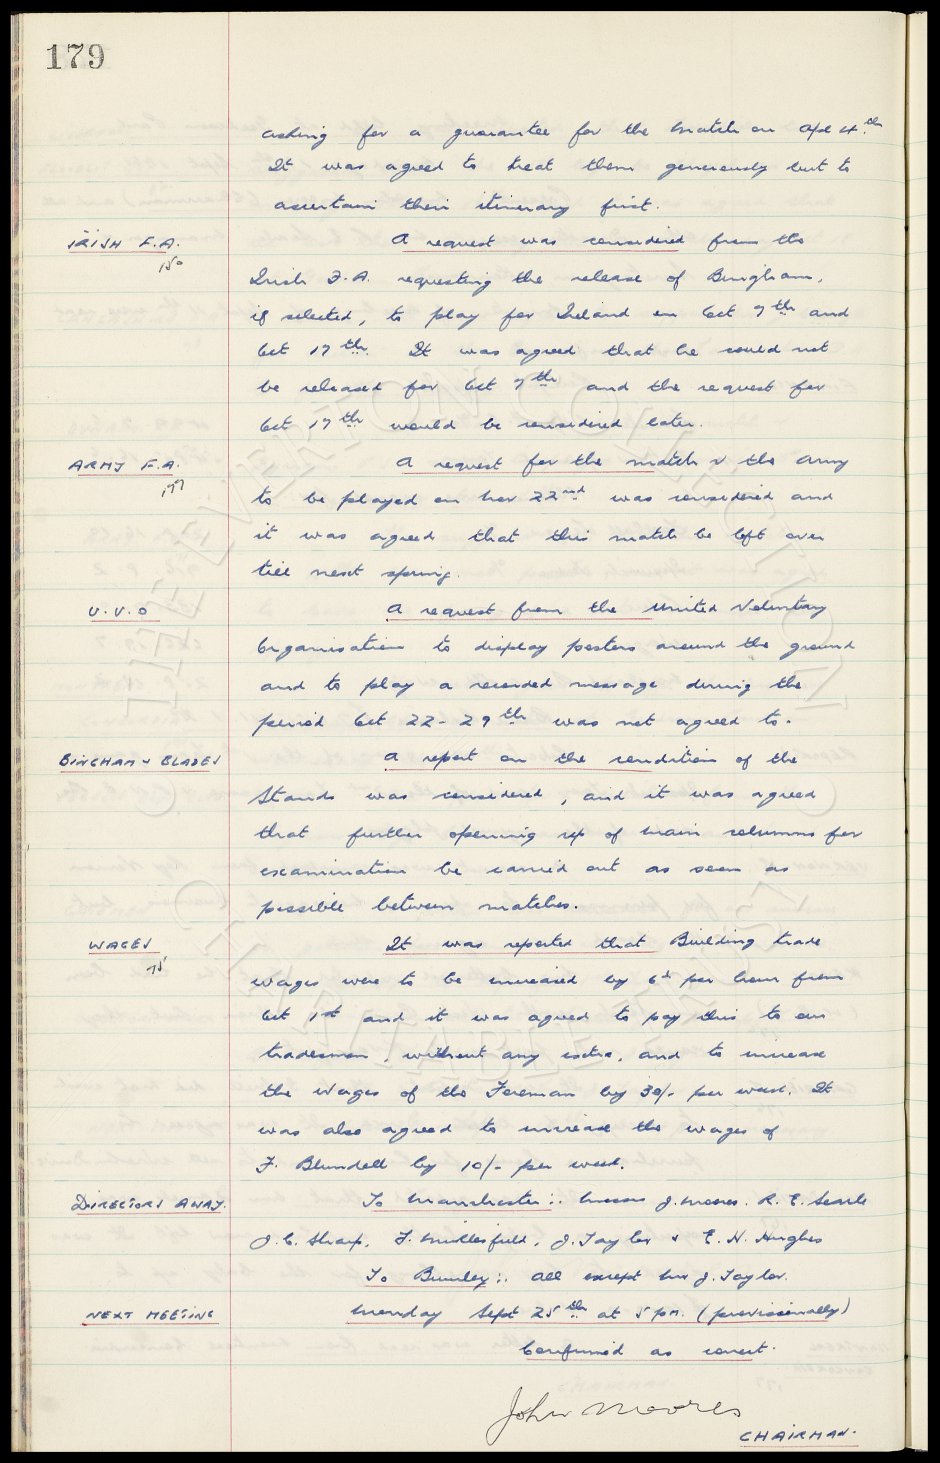 179
asking for a guarantee for the match on Apl 4th
It was agreed to treat them generously but to
ascertain their itinerary first.
IRISH F.A. A request was considered from the
150
Irish F.A. requesting the release of Bingham,
if selected, to play for Ireland on Oct 7th and
Oct 17th. It was agreed that he could not
be released for Oct 7th and the request for
Oct 17th would be considered later.
ARMY F.A. A request for the match v the Army
177
to be played on Nov 22nd was considered and
it was agreed that this match be left over
till next spring.
U.V.O A request from the United Voluntary
Organisation to display posters around the ground
and to play a recorded message during the
period Oct 22-29th was not agreed to.
BINGHAM & BLADES A report on the condition of the
Stands was considered, and it was agreed
that further opening up of main columns for
examination be carried out as soon as
possible between matches.
WAGES It was reported that Building trade
75
wages were to be increased by 6d per hour from
Oct 1st and it was agreed to pay this to our
tradesmen, without any extra, and to increase
the wages of the Foreman by 30/- per week. It
was also agreed to increase the wages of
F. Blundell by 10/- per week.
DIRECTORS AWAY. To Manchester:. Messrs J. Moores. R. E. Searle
J. C. Sharp, F. Micklesfield, J. Taylor & E. H. Hughes
To Burnley:. All except Mr J. Taylor.
NEXT MEETING Monday Sept 25th at 5 pm. (provisionally)
Confirmed as correct.
John Moores
CHAIRMAN.